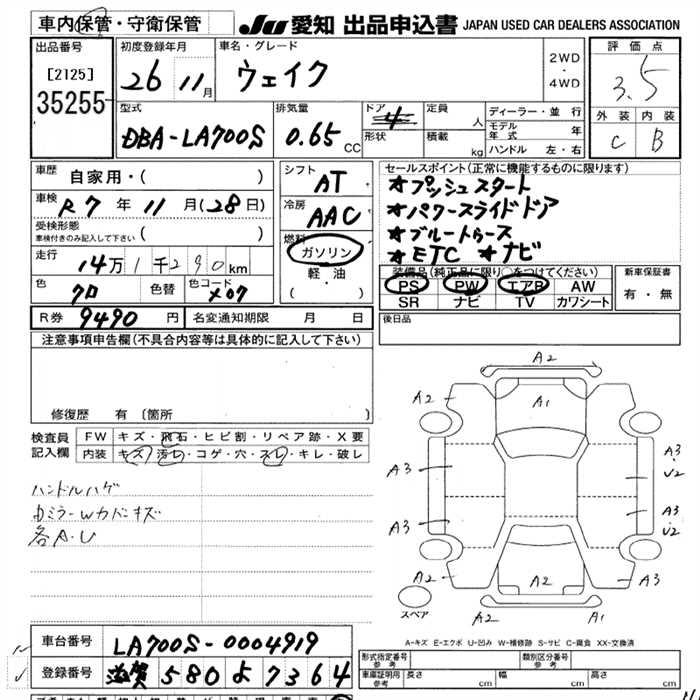 車内保管・守衛保管
JU 愛知 出品申込書 JAPAN USED CAR DEALERS ASSOCIATION
出品番号
[2125]
35255
初度登録年月
26 11月
車名・グレード
ウェイク
2WD
・
4WD
評価点
3.5
外装 内装
C B
型式
DBA-LA700S
排気量
0.65 CC
ドア
4
形状
定員 人
積載 kg
ディーラー・並行
モデル年式 年
ハンドル 左・右
車歴
自家用・( )
車検
R7年11月(28日)
受検形態
車検付きのみ記入して下さい ( )
走行
14万1千290km
色
クロ
色替
色コード
X07
シフト
AT
冷房
AAC
燃料
ガソリン
軽・油
( ・ )
セールスポイント(正常に機能するものに限ります)
★プッシュスタート
★パワースライドドア
★ブルートゥース
★ETC ★ナビ
装備品(純正品に限り○をつけてください)
PS PW エアB AW
SR ナビ TV カワシート
新車保証書
有・無
R券 9490円
名変通知期限 月 日
後日品
注意事項申告欄(不具合内容等は具体的に記入して下さい)
修復歴 有〔箇所 〕
検査員
記入欄
FW キズ・飛石・ヒビ割・リペア跡・X要
内装 キズ・汚レ・コゲ・穴・スレ・キレ・破レ
ハンドルハゲ
内ミラーWカバーキズ
各A.U
A2
A2
A1
A3
A3
A3
U2
A3
U2
A2
A2
A3
A2
A1
スペア
A-キズ E-エクボ U-凹み W-補修跡 S-サビ C-腐食 XX-交換済
車台番号 LA700S-0004919
登録番号 滋賀 580 よ 7364
形式指定番号
参考
類別区分番号
参考
車庫証明用
参考
長さ cm
幅 cm
高さ cm